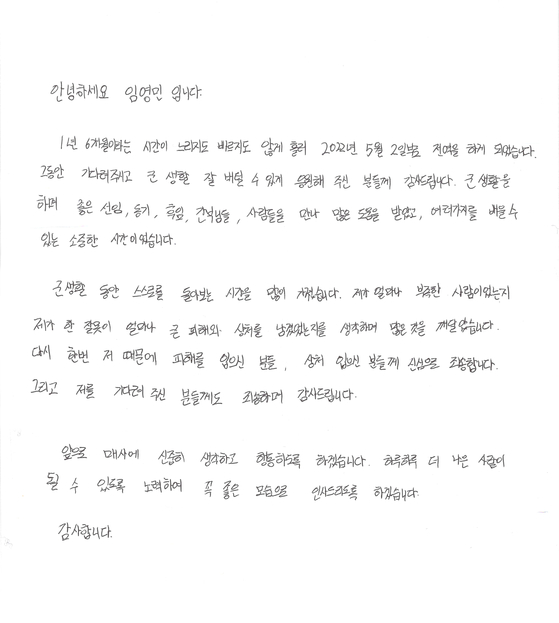 안녕하세요 임영민 입니다.
1년 6개월이라는 시간이 느리지도 빠르지도 않게 흘러 2022년 5월 2일부로 전역을 하게 되었습니다.
그동안 기다려주시고 군 생활 잘 버틸 수 있게 응원해 주신 분들께 감사드립니다. 군 생활을
하며 좋은 선임, 동기, 후임, 간부님들, 사람들을 만나 많은 도움을 받았고, 여러가지를 배울 수
있는 소중한 시간이었습니다.
군 생활 동안 스스로를 돌아보는 시간을 많이 가졌습니다. 제가 얼마나 부족한 사람이었는지
제가 한 잘못이 얼마나 큰 피해와 상처를 남겼었는지를 생각하며 많은 것을 깨달았습니다.
다시 한번 저 때문에 피해를 입으신 분들, 상처 입으신 분들께 진심으로 죄송합니다.
그리고 저를 기다려 주신 분들께도 죄송하며 감사드립니다.
앞으로 매사에 신중히 생각하고 행동하도록 하겠습니다. 하루하루 더 나은 사람이
될 수 있도록 노력하여 꼭 좋은 모습으로 인사드리도록 하겠습니다.
감사합니다.